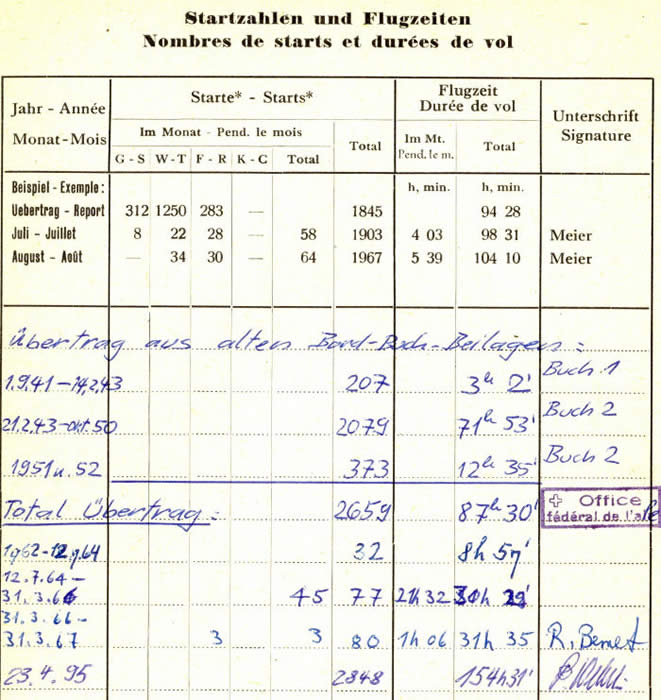 Startzahlen und Flugzeiten
Nombres de starts et durées de vol
Jahr - Année
Monat - Mois
Starte* - Starts*
Im Monat - Pend. le mois
G - S W - T F - R K - C Total
Total
Flugzeit
Durée de vol
Im Mt.
Pend. le m.
Total
Unterschrift
Signature
Beispiel - Exemple: h, min. h, min.
Uebertrag - Report 312 1250 283 — 1845 94 28
Juli - Juillet 8 22 28 — 58 1903 4 03 98 31 Meier
August - Août — 34 30 — 64 1967 5 39 104 10 Meier
Übertrag aus alten Bord-Buch-Beilagen:
1.9.41 - 14.2.43 207 3h 2' Buch 1
21.2.43 - okt. 50 2079 71h 53' Buch 2
1951 u. 52 373 12h 35' Buch 2
Total Übertrag: 2659 87h 30'
Office
fédéral de l'a
1962 - 12.7.64 32 8h 57'
12.7.64 -
31.3.66 45 77 21h 32 30h 29'
31.3.66 -
31.3.67 3 3 80 1h 06 31h 35
23.4.95 2848 154h31'